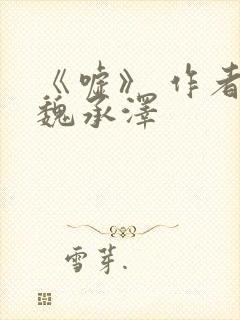 《嘘》 作者
魏承澤
雪芽.